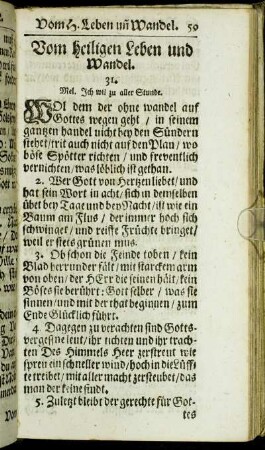 Vom H. Leben uñ Wandel. 59
Vom heiligen Leben und
Wandel.
31.
Mel. Ich wil zu aller Stunde.
WOl dem der ohne wandel auf
Gottes wegen geht / in seinem
gantzen handel nicht bey den Sündern
stehet / trit auch nicht auf den Plan / wo
böse Spötter richten / und freventlich
vernichten / was löblich ist gethan.
2. Wer Gott von Hertzen liebet / und
hat sein Wort in acht / sich in demselben
übet bey Tage und bey Nacht / ist wie ein
Baum am Flus / der immer hoch sich
schwinget / und reiffe Früchte bringet /
weil er stets grünen mus.
3. Ob schon die Feinde toben / kein
Blad herrunder fält / mit starckem arm
von oben / der HErr die seinen hält / kein
Böses sie berührt: Gott selber / was sie
sinnen / und mit der that beginnen / zum
Ende Glücklich führt.
4. Dagegen zu verachten sind Gotts-
vergeßne leut / ihr tichten und ihr trach-
ten Des Himmels Heer zerstreut wie
spreu ein schneller wind / hoch in die Lüffte
treibet / mit aller macht zersteubet / das
man der keine findt.
5. Zuletzt bleibt der gerechte für Got-
tes